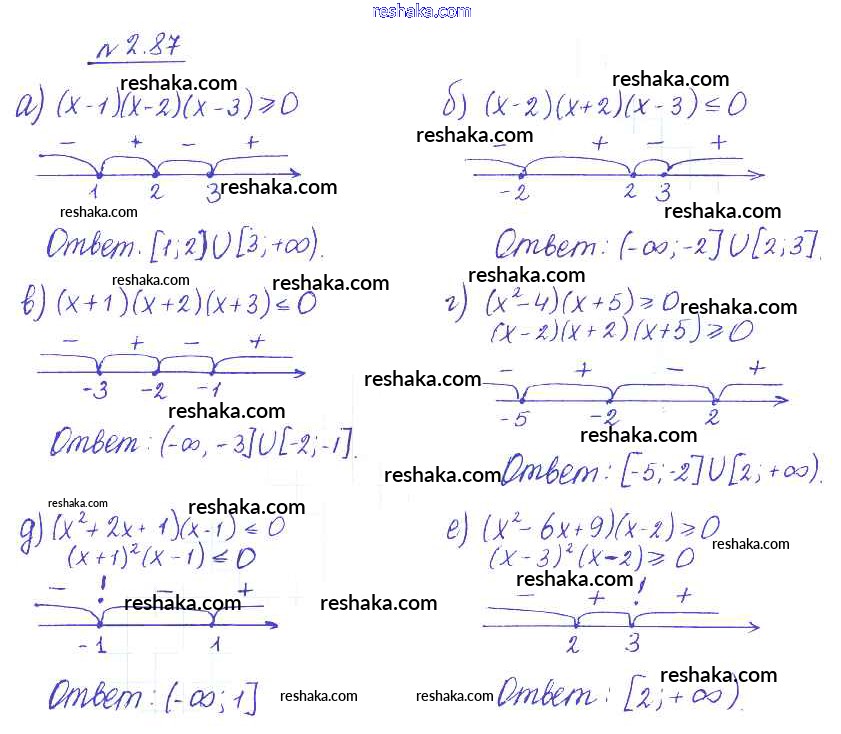 reshaka.com
№ 2.87
reshaka.com
а) (x-1)(x-2)(x-3) ≥ 0
- + - +
1 2 3 reshaka.com
reshaka.com
Ответ. [1; 2] ∪ [3; +∞).
reshaka.com
б) (x-2)(x+2)(x-3) ≤ 0
reshaka.com
- + - +
-2 2 3
reshaka.com
Ответ: (-∞; -2] ∪ [2; 3].
reshaka.com
в) (x+1)(x+2)(x+3) ≤ 0
- + - +
-3 -2 -1
reshaka.com
reshaka.com
Ответ: (-∞, -3] ∪ [-2; -1].
reshaka.com
г) (x²-4)(x+5) ≥ 0
reshaka.com
(x-2)(x+2)(x+5) ≥ 0
- + - +
-5 -2 2
reshaka.com
Ответ: [-5; -2] ∪ [2; +∞).
reshaka.com
reshaka.com
reshaka.com
д) (x²+2x+1)(x-1) ≤ 0
(x+1)²(x-1) ≤ 0
- ! - +
reshaka.com
-1 1
Ответ: (-∞; 1]
reshaka.com
reshaka.com
е) (x²-6x+9)(x-2) ≥ 0
reshaka.com
(x-3)²(x-2) ≥ 0
reshaka.com
- + ! +
2 3
reshaka.com
Ответ: [2; +∞).
reshaka.com